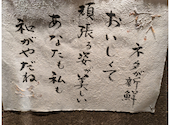 ネタが新鮮
おいしくて
頑張る姿が美しい
あなたも私も
和がやだね